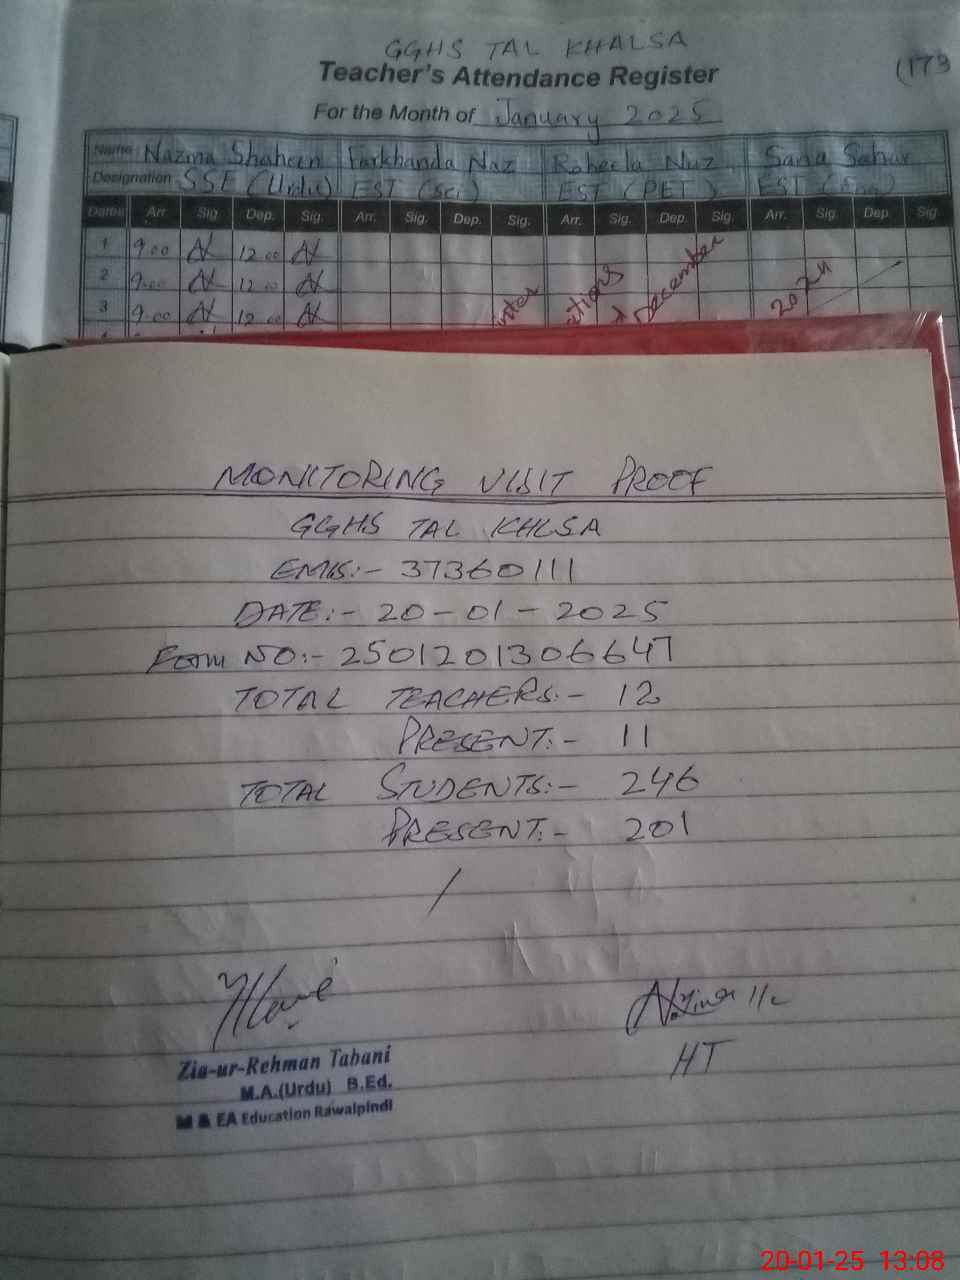 GGHS TAL KHALSA
Teacher's Attendance Register
(173
For the Month of January 2025
Name Nazma Shaheen Farkhanda Naz Raheela Naz Saria Sahar
Designation SSE (Urdu) EST (Sci) EST (PET) EST (Eng)
Dates Arr. Sig. Dep. Sig. Arr. Sig. Dep. Sig. Arr. Sig. Dep. Sig. Arr. Sig. Dep. Sig.
1 9.00 12.00
2 9.00 12.00
3 9.00 12.00
December 2024
MONITORING VISIT PROOF
GGHS TAL KHLSA
EMIS:- 37360111
DATE:- 20-01-2025
Form NO:- 2501201306647
TOTAL TEACHERS:- 12
PRESENT:- 11
TOTAL STUDENTS:- 246
PRESENT:- 201
HT
Zia-ur-Rehman Tabani
M.A.(Urdu) B.Ed.
M & EA Education Rawalpindi
20-01-25 13:08